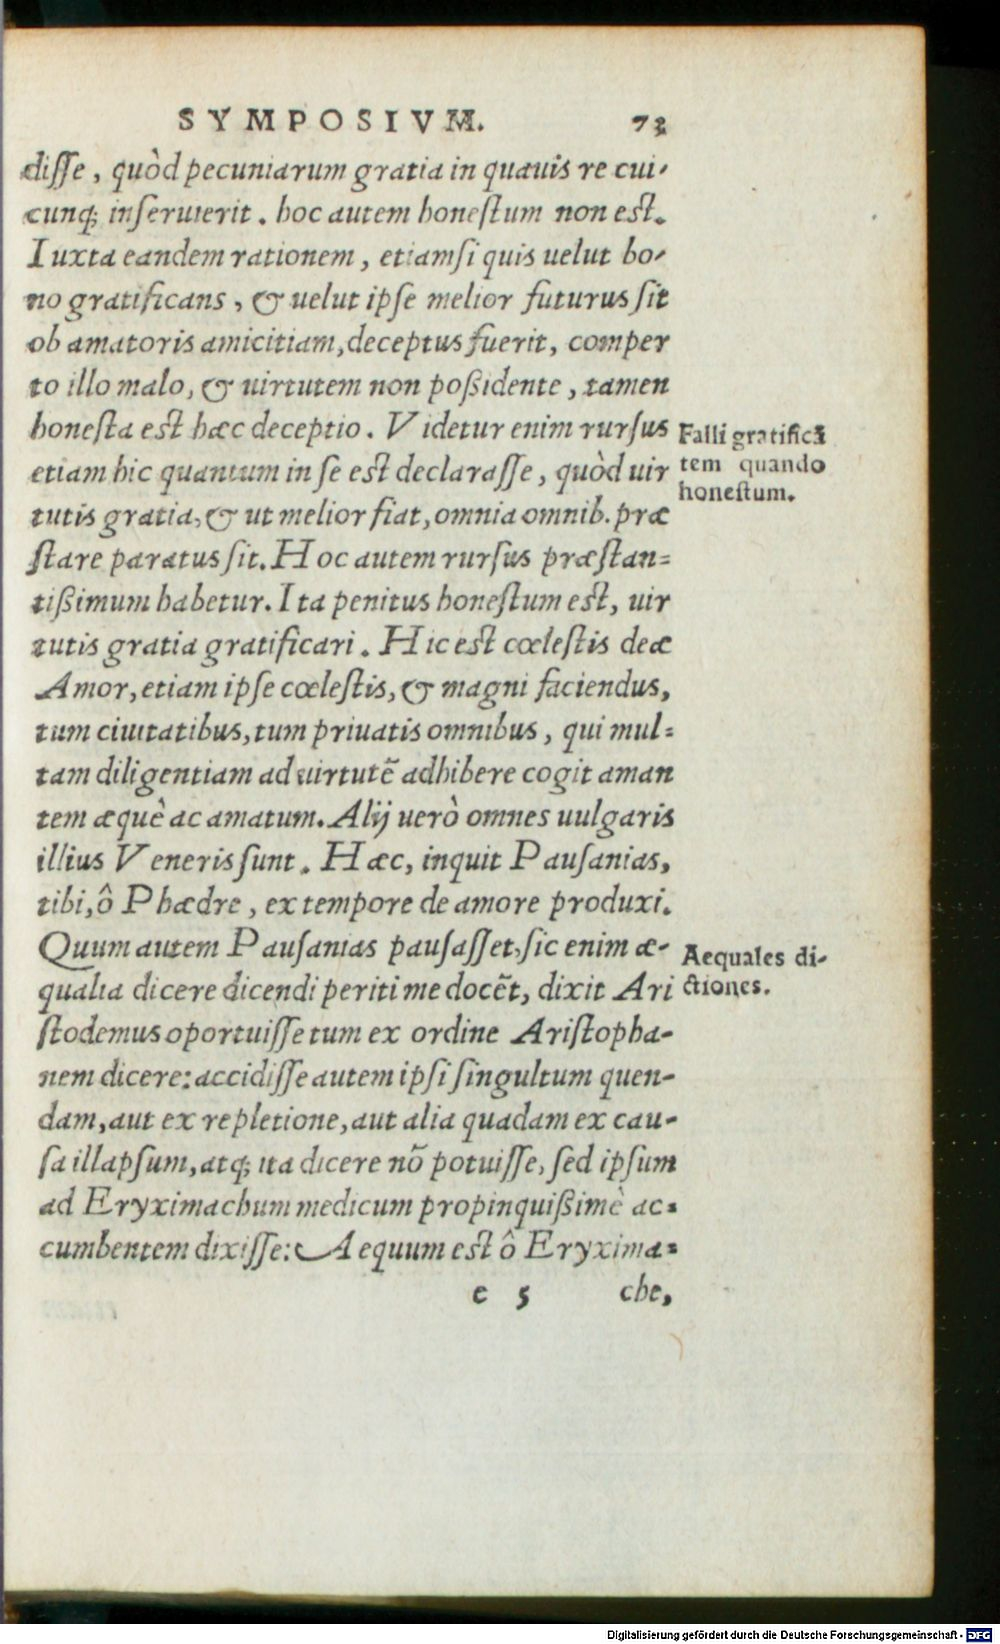 SYMPOSIVM. 73
disse, quòd pecuniarum gratia in quauis re cui-
cunq; inseruierit. hoc autem honestum non est.
Iuxta eandem rationem, etiamsi quis uelut bo-
no gratificans, & uelut ipse melior futurus sit
ob amatoris amicitiam, deceptus fuerit, comper
to illo malo, & uirtutem non possidente, tamen
honesta est hæc deceptio. Videtur enim rursus
etiam hic quantum in se est declarasse, quòd uir
tutis gratia, & ut melior fiat, omnia omnib. præ
stare paratus sit. Hoc autem rursus præstan=
tissimum habetur. Ita penitus honestum est, uir
tutis gratia gratificari. Hic est cœlestis deæ
Amor, etiam ipse cœlestis, & magni faciendus,
tum ciuitatibus, tum priuatis omnibus, qui mul=
tam diligentiam ad uirtutē adhibere cogit aman
tem æquè ac amatum. Alij uerò omnes uulgaris
illius Veneris sunt. Hæc, inquit Pausanias,
tibi, ô Phædre, ex tempore de amore produxi.
Quum autem Pausanias pausasset, sic enim æ-
qualia dicere dicendi periti me docēt, dixit Ari
stodemus oportuisse tum ex ordine Aristopha-
nem dicere: accidisse autem ipsi singultum quen-
dam, aut ex repletione, aut alia quadam ex cau-
sa illapsum, atq; ita dicere nō potuisse, sed ipsum
ad Eryximachum medicum propinquissimè ac=
cumbentem dixisse: Aequum est ô Eryxima=
e 5 che,
Falli gratificā
tem quando
honestum.
Aequales di-
ctiones.
Digitalisierung gefördert durch die Deutsche Forschungsgemeinschaft - DFG